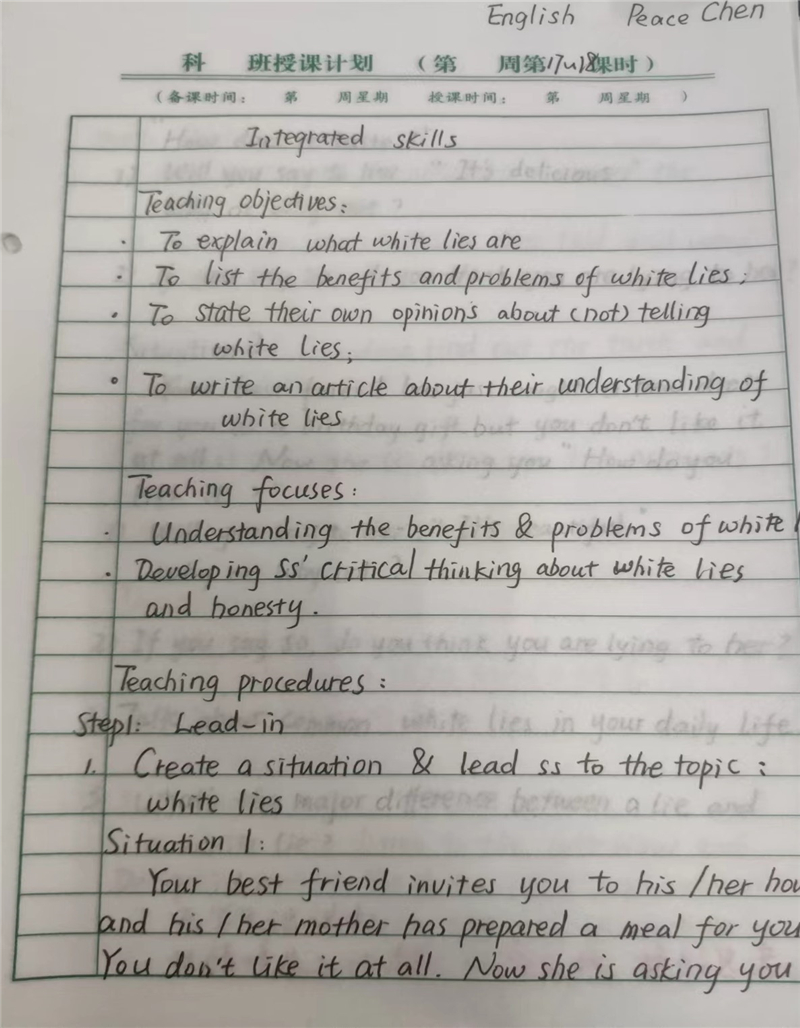 English Peace Chen
科 班授课计划 (第 周第17~18课时)
(备课时间: 第 周星期 授课时间: 第 周星期 )
Integrated skills
Teaching objectives:
· To explain what white lies are
· To list the benefits and problems of white lies;
· To state their own opinions about (not) telling
white lies;
· To write an article about their understanding of
white lies
Teaching focuses:
· Understanding the benefits & problems of white
· Developing Ss' critical thinking about white lies
and honesty.
Teaching procedures:
Step1: Lead-in
1. Create a situation & lead ss to the topic:
white lies
Situation 1:
Your best friend invites you to his/her hou
and his/her mother has prepared a meal for you
You don't like it at all. Now she is asking you